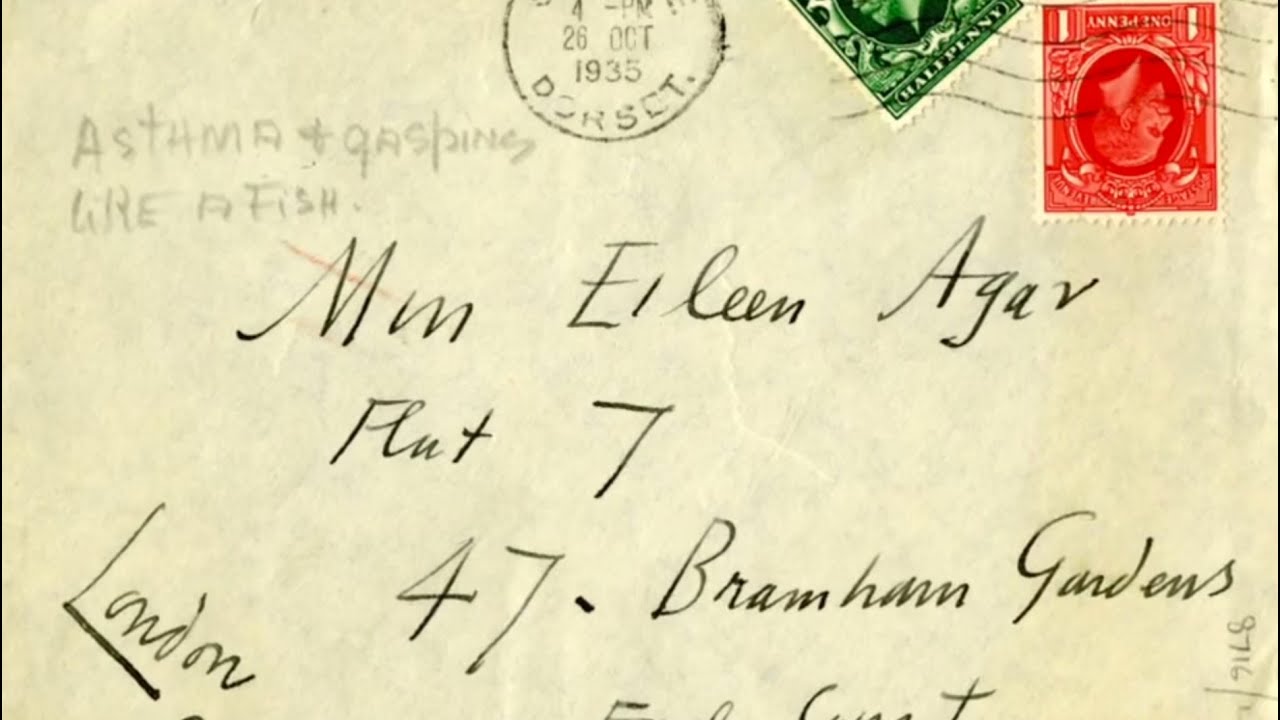 4 -PM
26 OCT
1935
DORSET.
HALFPENNY
1 ONE PENNY 1
ASTHMA & GASPING
LIKE A FISH.
Miss Eileen Agar
Flat 7
47. Bramham Gardens
London